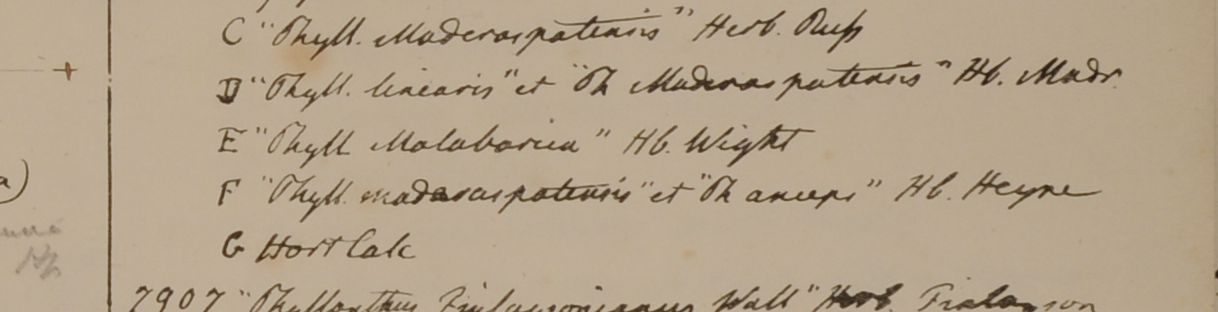 C "Phyll. Maderaspatensis" Herb. Russ
D "Phyll. linearis" et "Ph Maderaspatensis" Hb. Madr.
E "Phyll Malabarica" Hb. Wight
F "Phyll. madaraspatensis" et "Ph anceps" Hb. Heyne
a)
G Hort Calc
7907 "Phyllanthus Finlaysonianus Wall" Herb. Finlayson